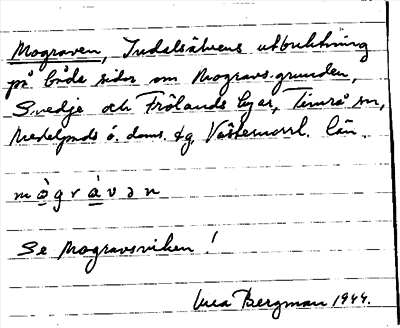 Mograven, Indalsälvens utbuktning
på båda sidor om Mogravsgrunden,
Svedje och Frölands byar, Timrå sn,
Medelpads ö. doms. tg, Västernorrl. län.
mògràvən
Se Mogravsviken!
Bergman 1944.